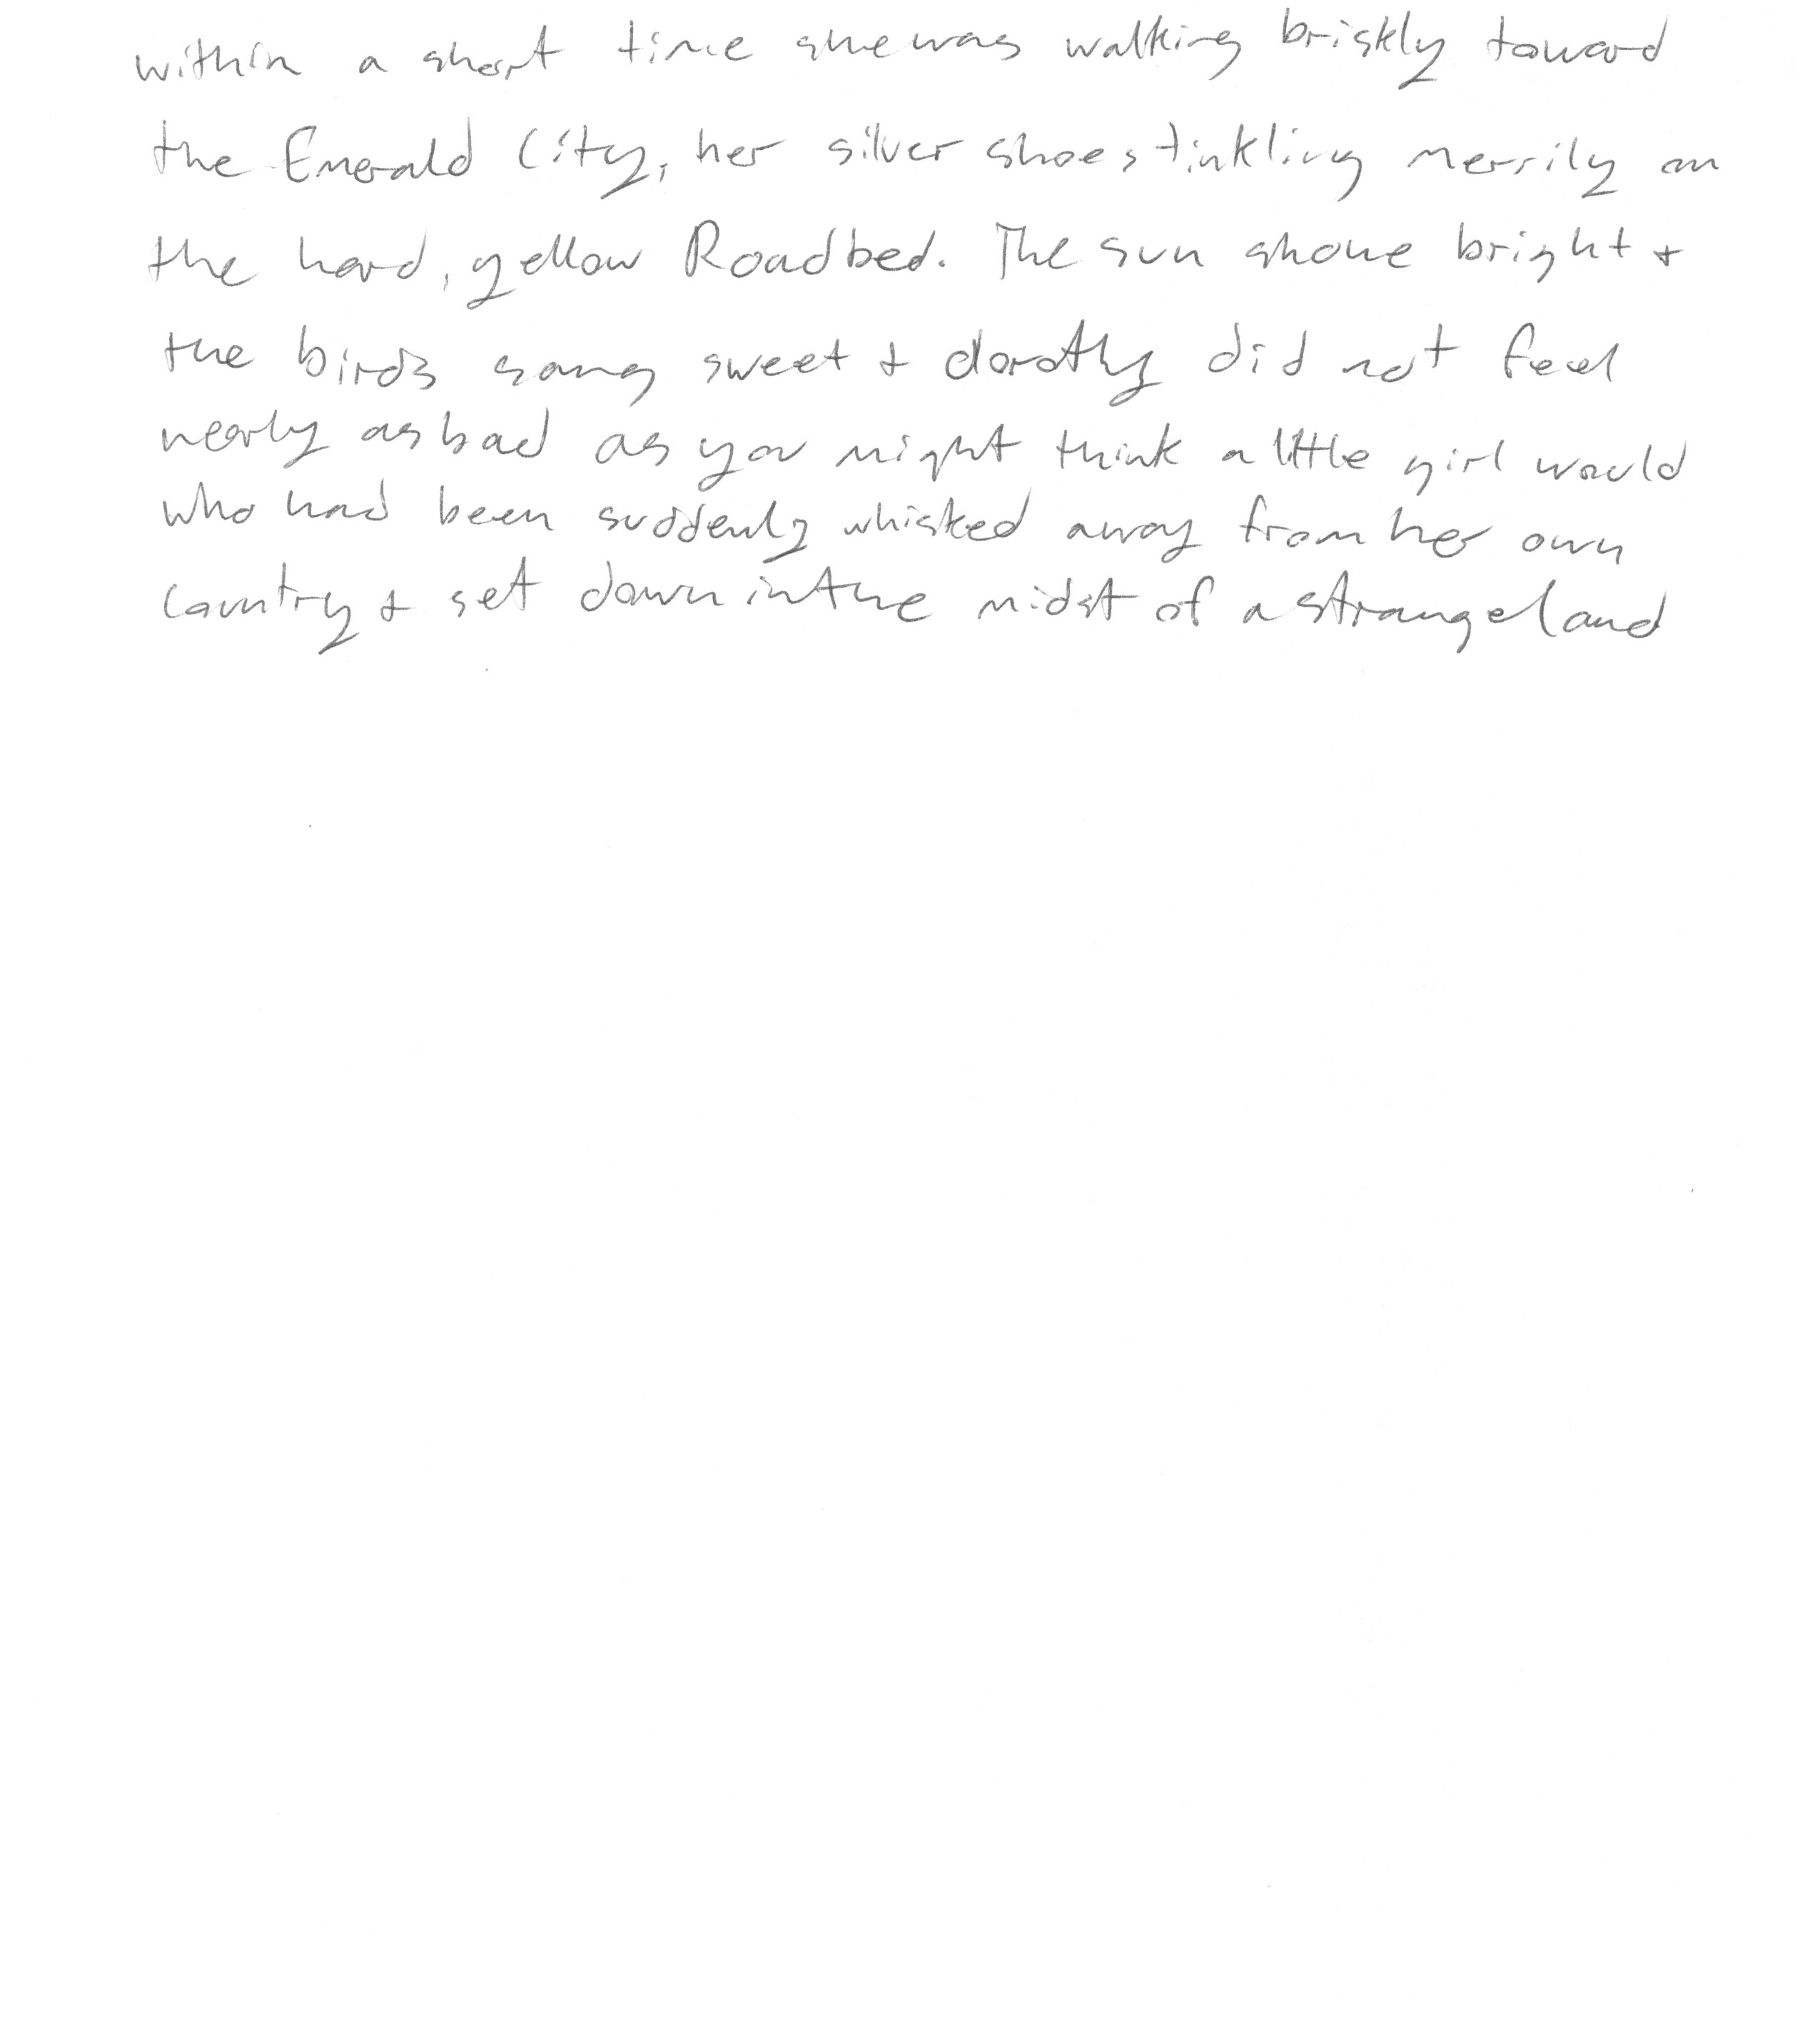 within a short time she was walking briskly toward
the Emerald City, her silver shoes tinkling merrily on
the hard, yellow Roadbed. The sun shone bright +
the birds sang sweet + dorothy did not feel
nearly as bad as you might think a little girl would
who had been suddenly whisked away from her own
country + set down in the midst of a strange land